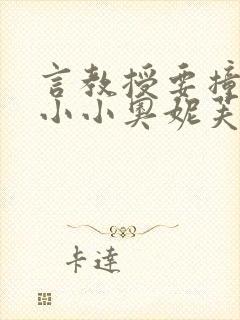 言教授要撞
小小奥妮芙
卡達